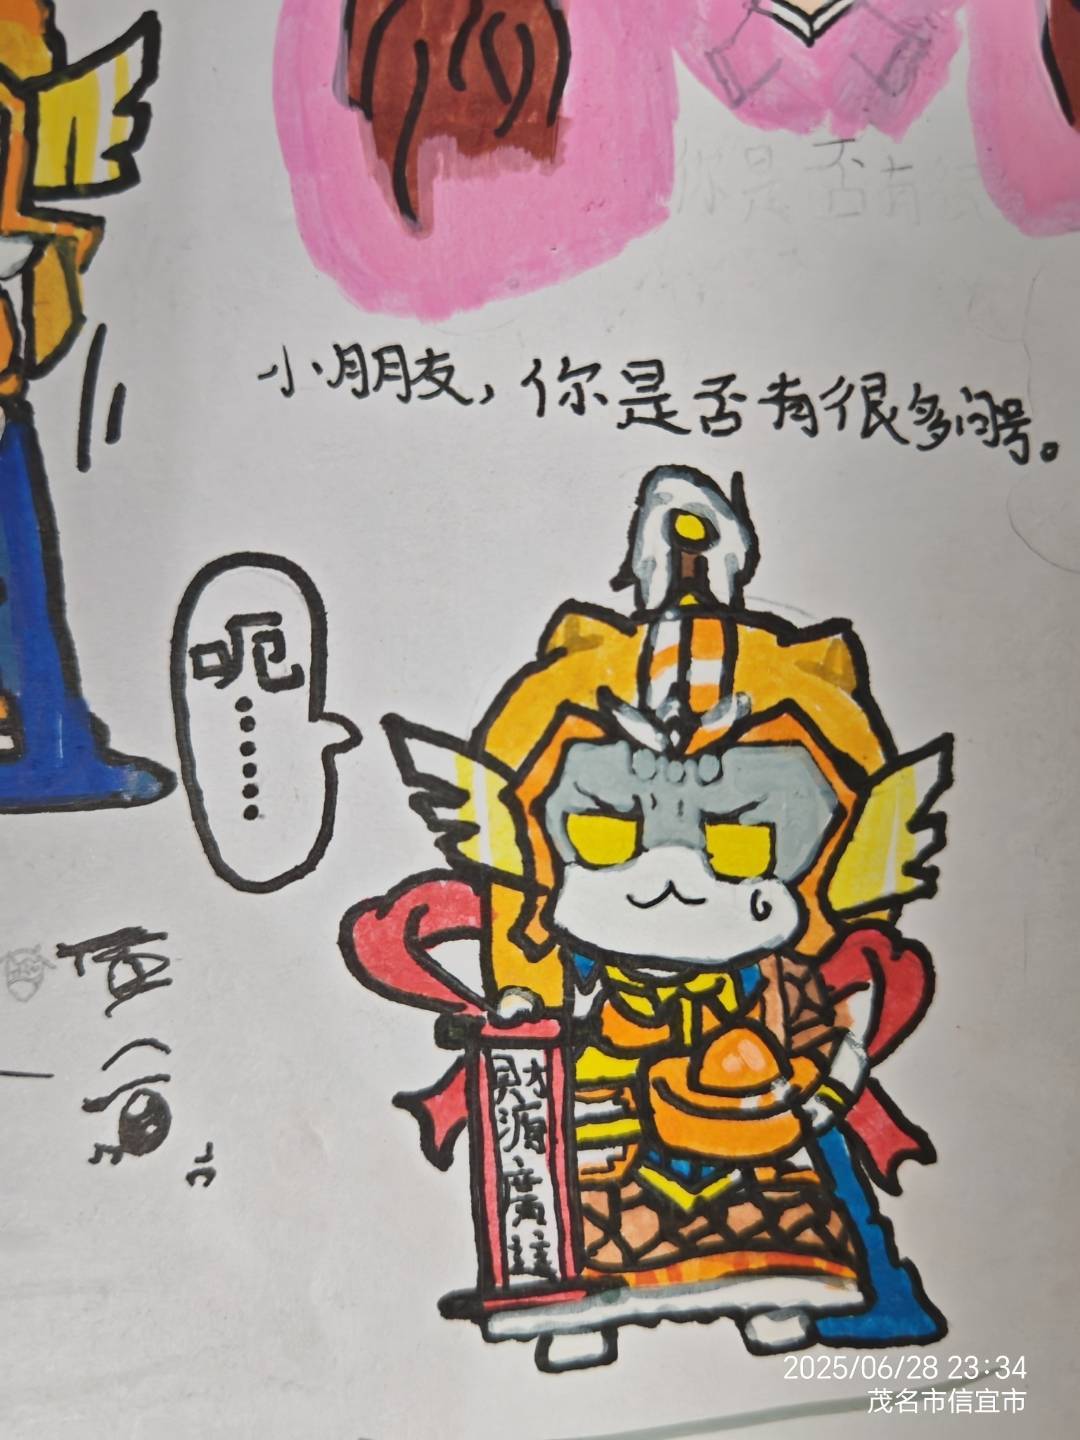 你是否有很
小朋友，你是否有很多问号。
呃
……
財源廣進
2025/06/28 23:34
茂名市信宜市